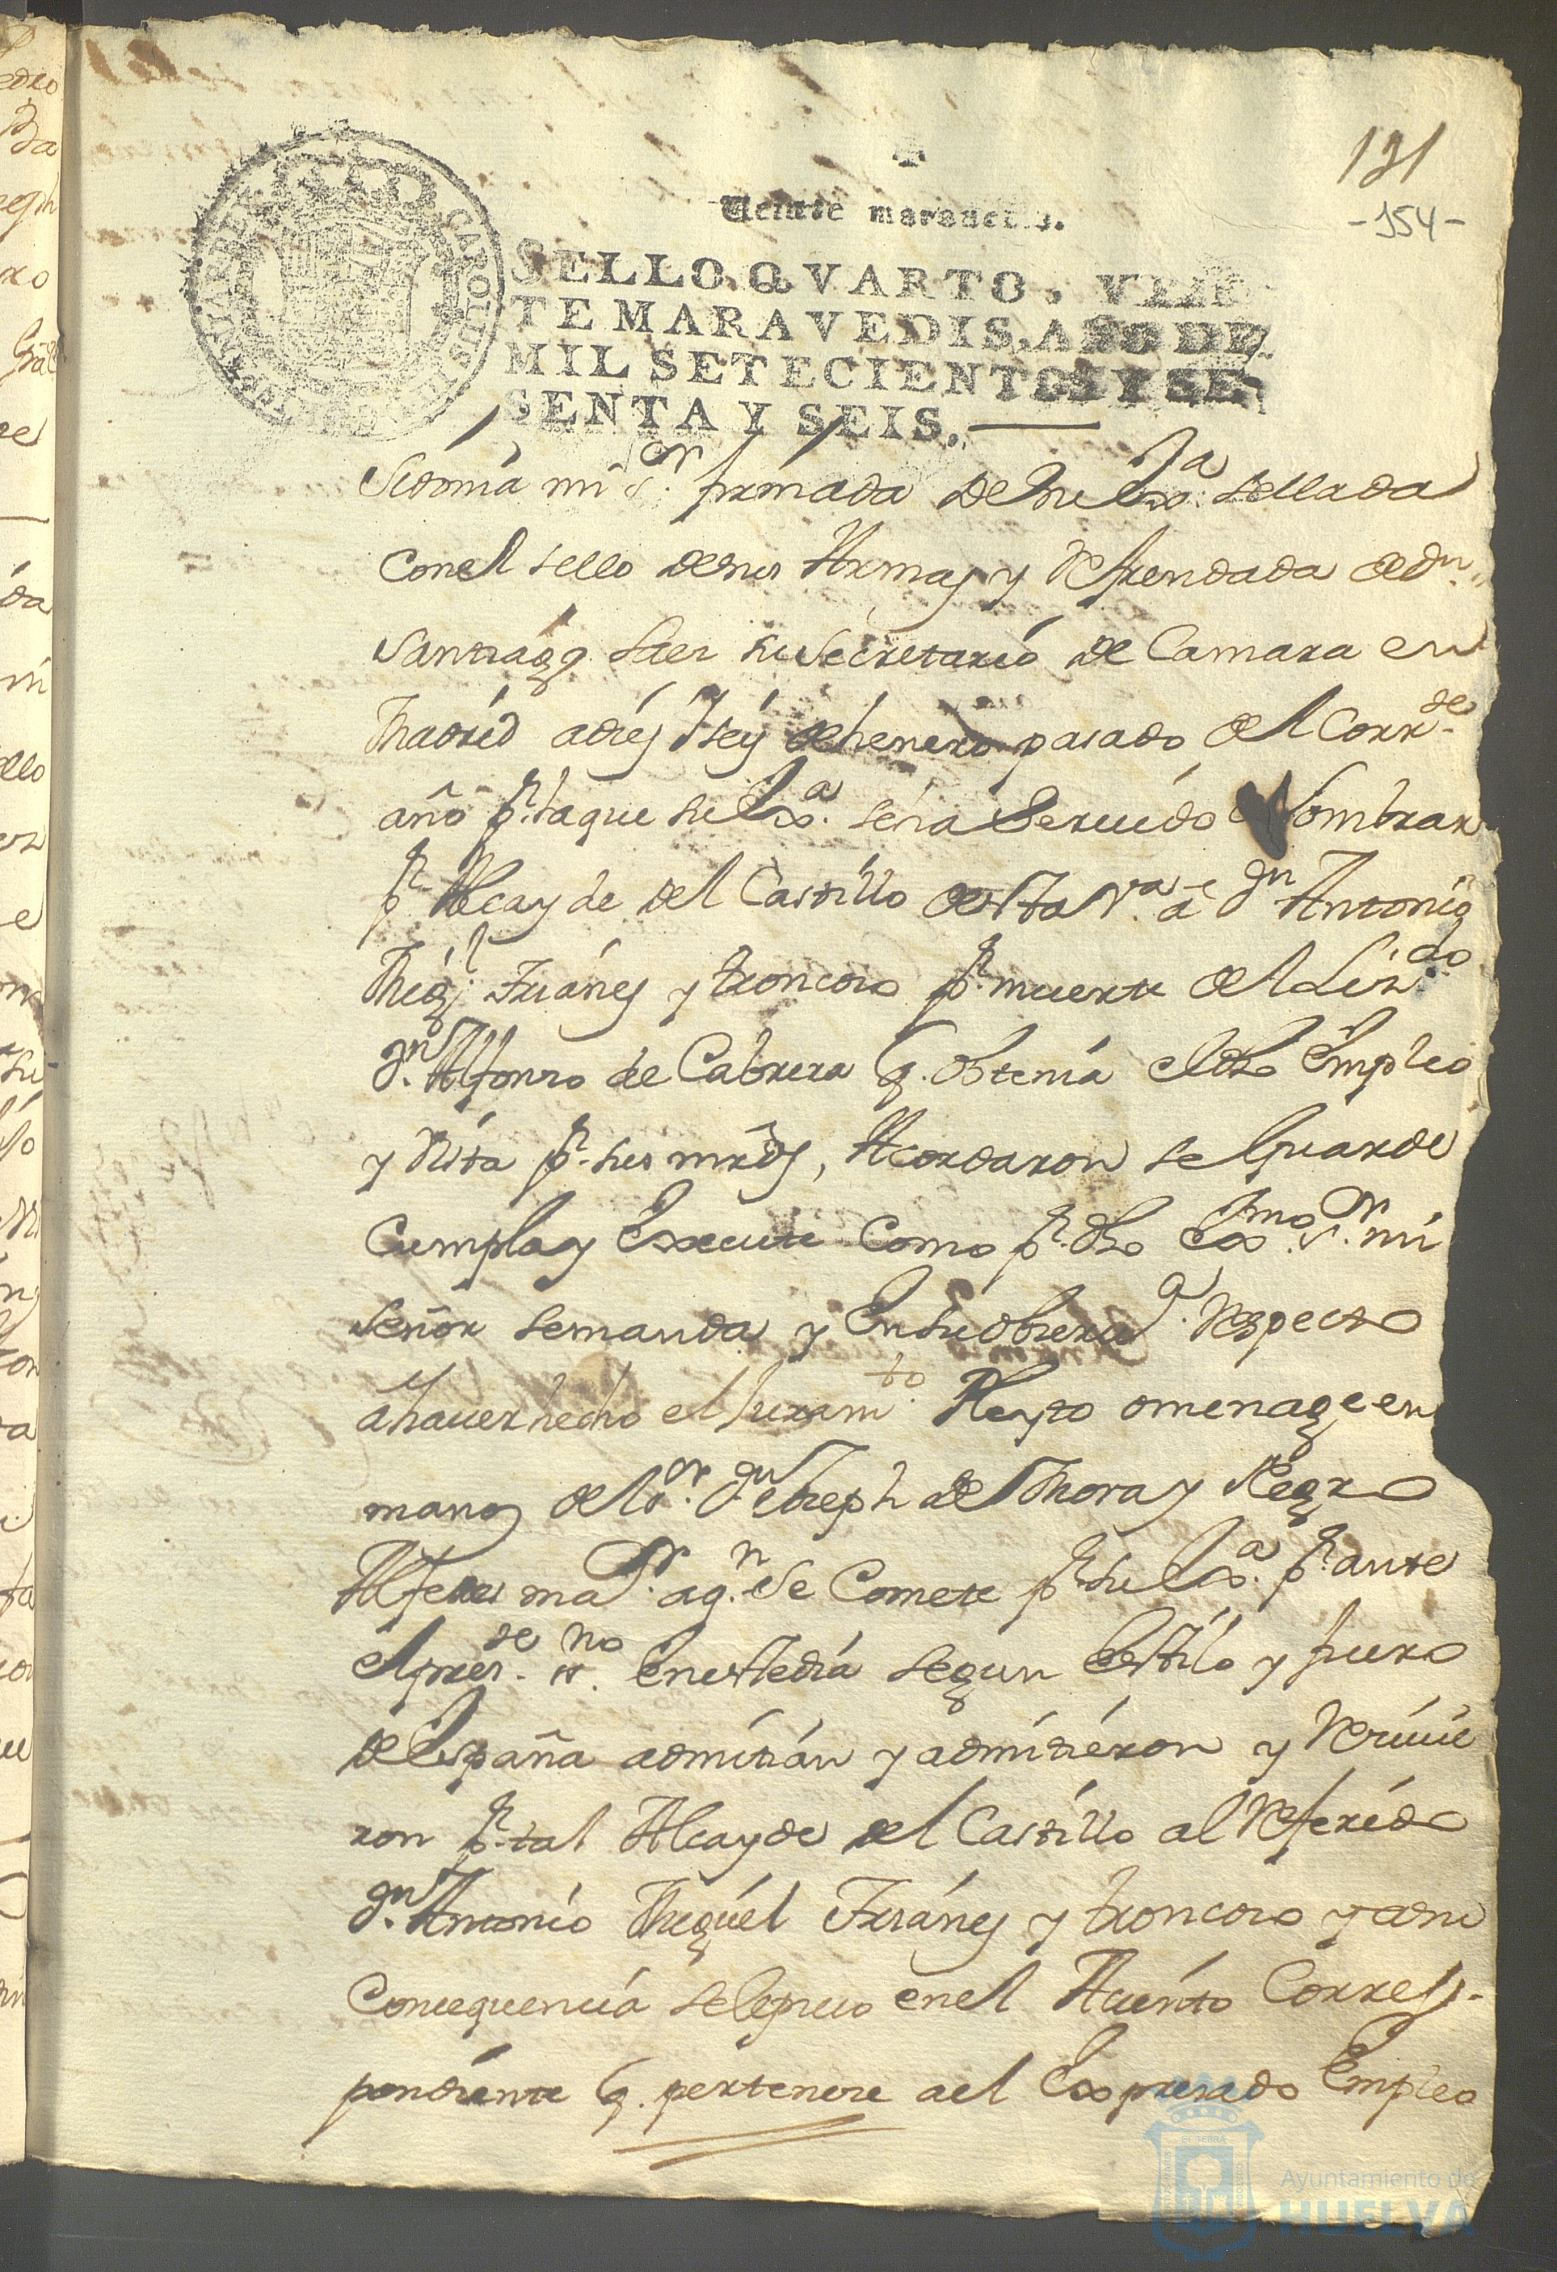 131
-154-
Veinte maravedis.
SELLO QVARTO, VEIN
TE MARAVEDIS, AÑO DE
MIL SETECIENTOS Y SE
SENTA Y SEIS.
CAROLUS III D G HISPANIAR REX
Sidonia mi Sor. firmada de su Exa. sellada
con el sello de sus Armas y Refrendada de Dn.
Santiago Saez su Secretario de Camara en
Madrid a diez y seis de henero pasado del Corrde.
año pr. la que su Exa. se ha Servido Nombrar
pr. Alcayde del Castillo desta Va. a Dn Antonio
Migl. Frianes y troncoso pr. muerte del Lizdo.
Dn. Alfonso de Cabrera q. obtenia el dho Empleo
y Vista pr. sus mrds, Acordaron se Guarde
Cumpla y Execute Como pr. dho Exmo. Sr. mi
Señor se manda y En su obserua. Respecto
a hauer hecho el Juramto. Pleyto omenage en
manos del Sr. Dn Joseph de Mora y Negro
Alferes mar. a qn. se Comete pr. su Exa. pr. ante
el presde. sno. En este dia segun Estilo y fuero
de España admitian y admitieron y Reciuie
ron pr. tal Alcayde del Castillo al Referido
Dn. Antonio Miguel Frianes y troncoso y en su
Consequencia se le puso en el Aciento Corres-
pondiente q. pertenese a el Expresado Empleo
Ayuntamiento de
HUELVA